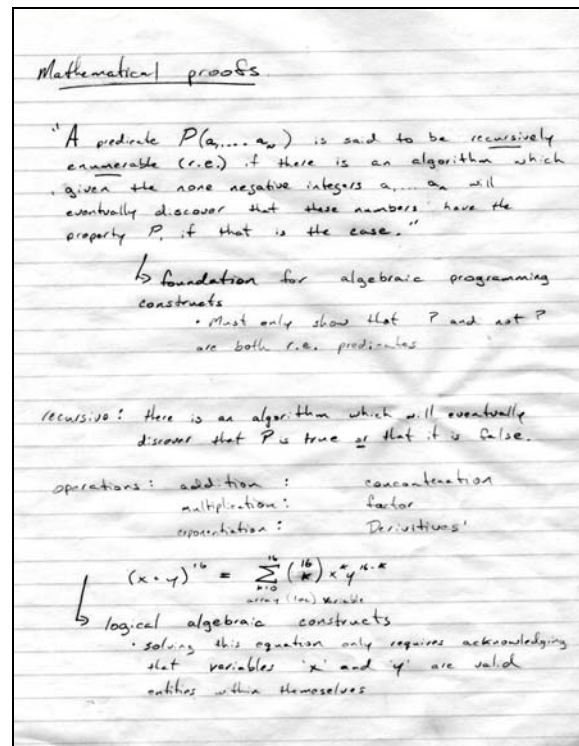 Mathematical proofs
"A predicate P(a,.... aₙ) is said to be recursively
enumerable (r.e.) if there is an algorithm which
given the none negative integers a,... aₙ will
eventually discover that these numbers have the
property P, if that is the case."
↳ foundation for algebraic programming
constructs
• Must only show that P and not P
are both r.e. predicates
recursive: there is an algorithm which will eventually
discover that P is true or that it is false.
operations: addition: concatenation
multiplication: factor
exponentiation: Derivitives'
(x + y)¹⁶ = ∑ₖ₌₀¹⁶ (16 k) xᵏ y¹⁶⁻ᵏ
array (loc) variable
↳ logical algebraic constructs
• solving this equation only requires acknowledging
that variables 'x' and 'y' are valid
entities within themselves